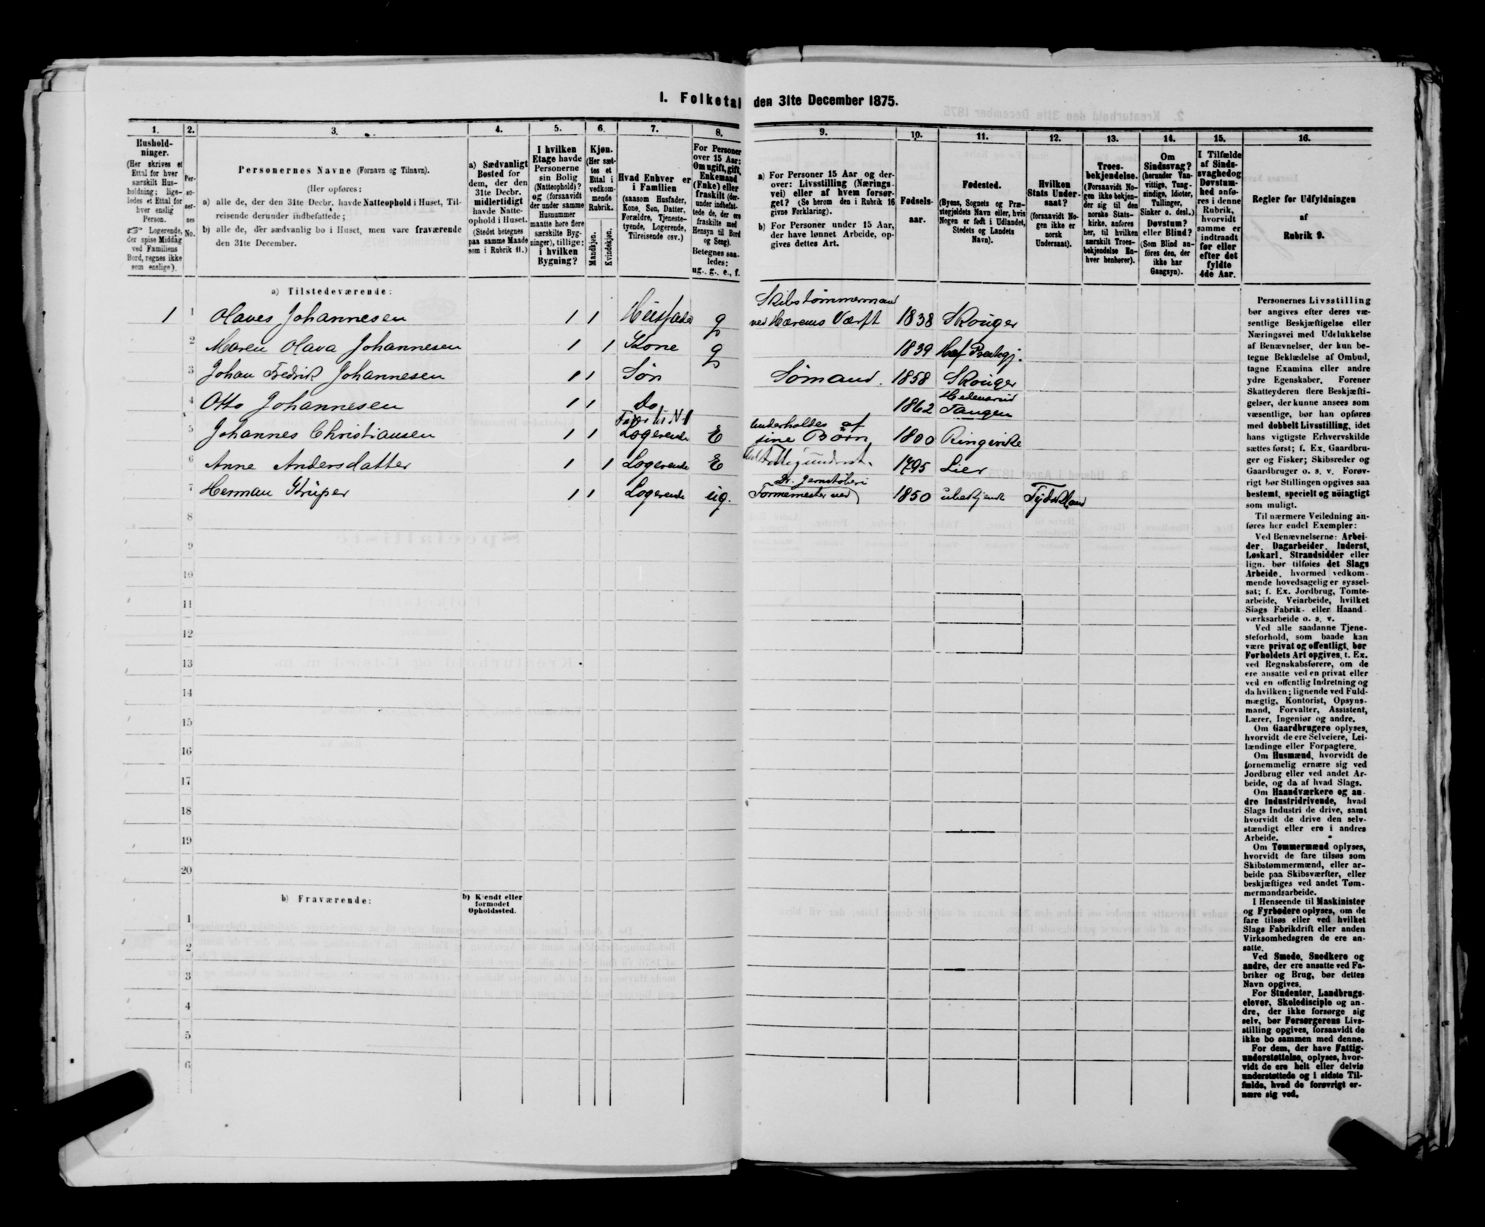 I. Folketal den 31te December 1875.
1. 2. 3. 4. 5. 6. 7. 8. 9. 10. 11. 12. 13. 14. 15. 16.
Hushold-
ninger.
(Her skrives et
Ettal for hver
særskilt Hus-
holdning; lige-
ledes et Ettal for
hver enslig
Person.
Logerende,
der spise Middag
ved Familiens
Bord, regnes ikke
som enslige).
Per-
so-
ner-
nes
No.
Personernes Navne (Fornavn og Tilnavn).
(Her opføres:
a) alle de, der den 31te Decbr. havde Natteophold i Huset, Til-
reisende derunder indbefattede;
b) alle de, der sædvanlig bo i Huset, men vare fraværende
den 31te December.
a) Sædvanligt
Bosted for
dem, der den
31te Decbr.
midlertidigt
havde Natte-
ophold i Huset.
(Stedet betegnes
paa samme Maade
som i Rubrik 11.)
I hvilken
Etage havde
Personerne
sin Bolig
(Natteophold)?
og (forsaavidt
der under samme
Husnummer
maatte høre flere
særskilte Byg-
ninger), tillige:
i hvilken
Bygning?
Kjøn.
(Her sæt-
tes et
Ettal i
vedkom-
mende
Rubrik.
Mandkjøn.
Kvindekjøn.
Hvad Enhver er
i Familien
(saasom Husfader,
Kone, Søn, Datter,
Forældre, Tjeneste-
tyende, Logerende,
Tilreisende osv.)
For Personer
over 15 Aar:
Om ugift, gift,
Enkemand
(Enke) eller
fraskilt (der-
under indbefat-
tede de, der ere
fraskilte med
Hensyn til Bord
og Seng).
Betegnes saa-
ledes:
ug., g., e., f.
a) For Personer 15 Aar og der-
over: Livsstilling (Nærings-
vei) eller af hvem forsør-
get? (Se herom den i Rubrik 16
givne Forklaring).
b) For Personer under 15 Aar,
der have lønnet Arbeide, op-
gives dettes Art.
Fødsels-
aar.
Fødested.
(Byens, Sognets og Præ-
stegjeldets Navn eller, hvis
Nogen er født i Udlandet,
Stedets og Landets
Navn).
Hvilken
Stats Under-
saat?
(forsaavidt No-
gen ikke er
norsk
Undersaat).
Troes-
bekjendelse.
(Forsaavidt No-
gen ikke bekjen-
der sig til den
norske Stats-
kirke, anføres
her, til hvilken
særskilt Troes-
bekjendelse En-
hver henhører).
Om
Sindssvag?
(herunder Van-
vittige, Tung-
sindige, Idioter,
Tullinger,
Sinker o. desl.)
Døvstum?
eller Blind?
(Som Blind an-
føres den, der
ikke har
Gangsyn).
I Tilfælde
af Sinds-
svaghed og
Døvstum-
hed anfø-
res i denne
Rubrik,
hvorvidt
samme er
indtraadt
før eller
efter det
fyldte
4de Aar.
Regler for Udfyldningen
af
Rubrik 9.
a) Tilstedeværende:
1 1 Olaves Johannesen 1 1 Husfader g Skibstømmermand ved Hærens Værft 1838 Skouger
2 Maren Olava Johannesen 1 1 Kone g 1839
3 Johan Fredrik Johannesen 1 1 Søn Sømand. 1858 Skouger
4 Otto Johannesen 1 1 do 1862 Tangen
5 Johannes Christiansen 1 1 Logerende E Underholdes af sine Børn 1800 Ringerike
6 Anne Andersdatter 1 1 Logerende E Fattigunderst. 1795 Lier
7 Herman Krüper 1 1 Logerende ug. Formemester ved Dr. Jernstøberi 1850 ubekjendt Tydskland
8
9
10
11
12
13
14
15
16
17
18
19
20
b) Fraværende:
b) Kjendt eller
formodet
Opholdssted.
1
2
3
4
5
6
Personernes Livsstilling
bør angives efter deres væ-
sentlige Beskjæftigelse eller
Næringsvei med Udelukkelse
af Benævnelser, der kun be-
tegne Beklædelse af Ombud,
tagne Examina eller andre
ydre Egenskaber. Forener
Skatteyderen flere Beskjæfti-
gelser, der kunne ansees som
væsentlige, bør han opføres
med dobbelt Livsstilling, idet
hans vigtigste Erhvervskilde
sættes først; f. Ex. Gaardbru-
ger og Fisker; Skibsreder og
Gaardbruger o. s. v. Forøv-
rigt bør Stillingen opgives saa
bestemt, specielt og nöiagtigt
som muligt.
Til nærmere Veiledning an-
føres her endel Exempler:
Ved Benævnelserne: Arbei-
der, Dagarbeider, Inderst,
Løskarl, Strandsidder eller
lign. bør tilføies det Slags
Arbeide, hvormed vedkom-
mende hovedsagelig er syssel-
sat; f. Ex. Jordbrug, Tomte-
arbeide, Veiarbeide, hvilket
Slags Fabrik- eller Haand-
værksarbeide o. s. v.
Ved alle saadanne Tjene-
steforhold, som baade kan
være privat og offentligt, bør
Forholdets Art opgives, f. Ex.
ved Regnskabsførere, om de
ere ansatte ved en privat eller
ved en offentlig Indretning og
da hvilken; lignende ved Fuld-
mægtig, Kontorist, Opsyns-
mand, Forvalter, Assistent,
Lærer, Ingeniør og andre.
Om Gaardbrugere oplyses,
hvorvidt de ere Selveiere, Lei-
lændinge eller Forpagtere.
Om Husmænd, hvorvidt de
fornemmelig ernære sig ved
Jordbrug eller ved andet Ar-
beide, og da af hvad Slags.
Om Haandværkere og an-
dre Industridrivende, hvad
Slags Industri de drive, samt
hvorvidt de drive den selv-
stændigt eller ere i andres
Arbeide.
Om Tømmermænd oplyses,
hvorvidt de fare tilsøs som
Skibstømmermænd, eller ar-
beide paa Skibsværfter, eller
beskjæftiges ved andet Tøm-
mermandsarbeide.
I Henseende til Maskinister
og Fyrbødere oplyses, om de
fare tilsøs eller ved hvilket
Slags Fabrikdrift eller anden
Virksomhedsgren de ere an-
satte.
Ved Smede, Snedkere og
andre, der ere ansatte ved Fa-
briker og Brug, bør dettes
Navn opgives.
For Studenter, Landbrugs-
elever, Skoledisciple og an-
dre, der ikke forsørge sig
selv, bør Forsørgerens Livs-
stilling opgives, forsaavidt de
ikke bo sammen med denne.
For dem, der have Fattig-
understøttelse, oplyses, hvor-
vidt de ere helt eller delvis
understøttede og i sidste Til-
fælde, hvad de forøvrigt er-
nære sig ved.